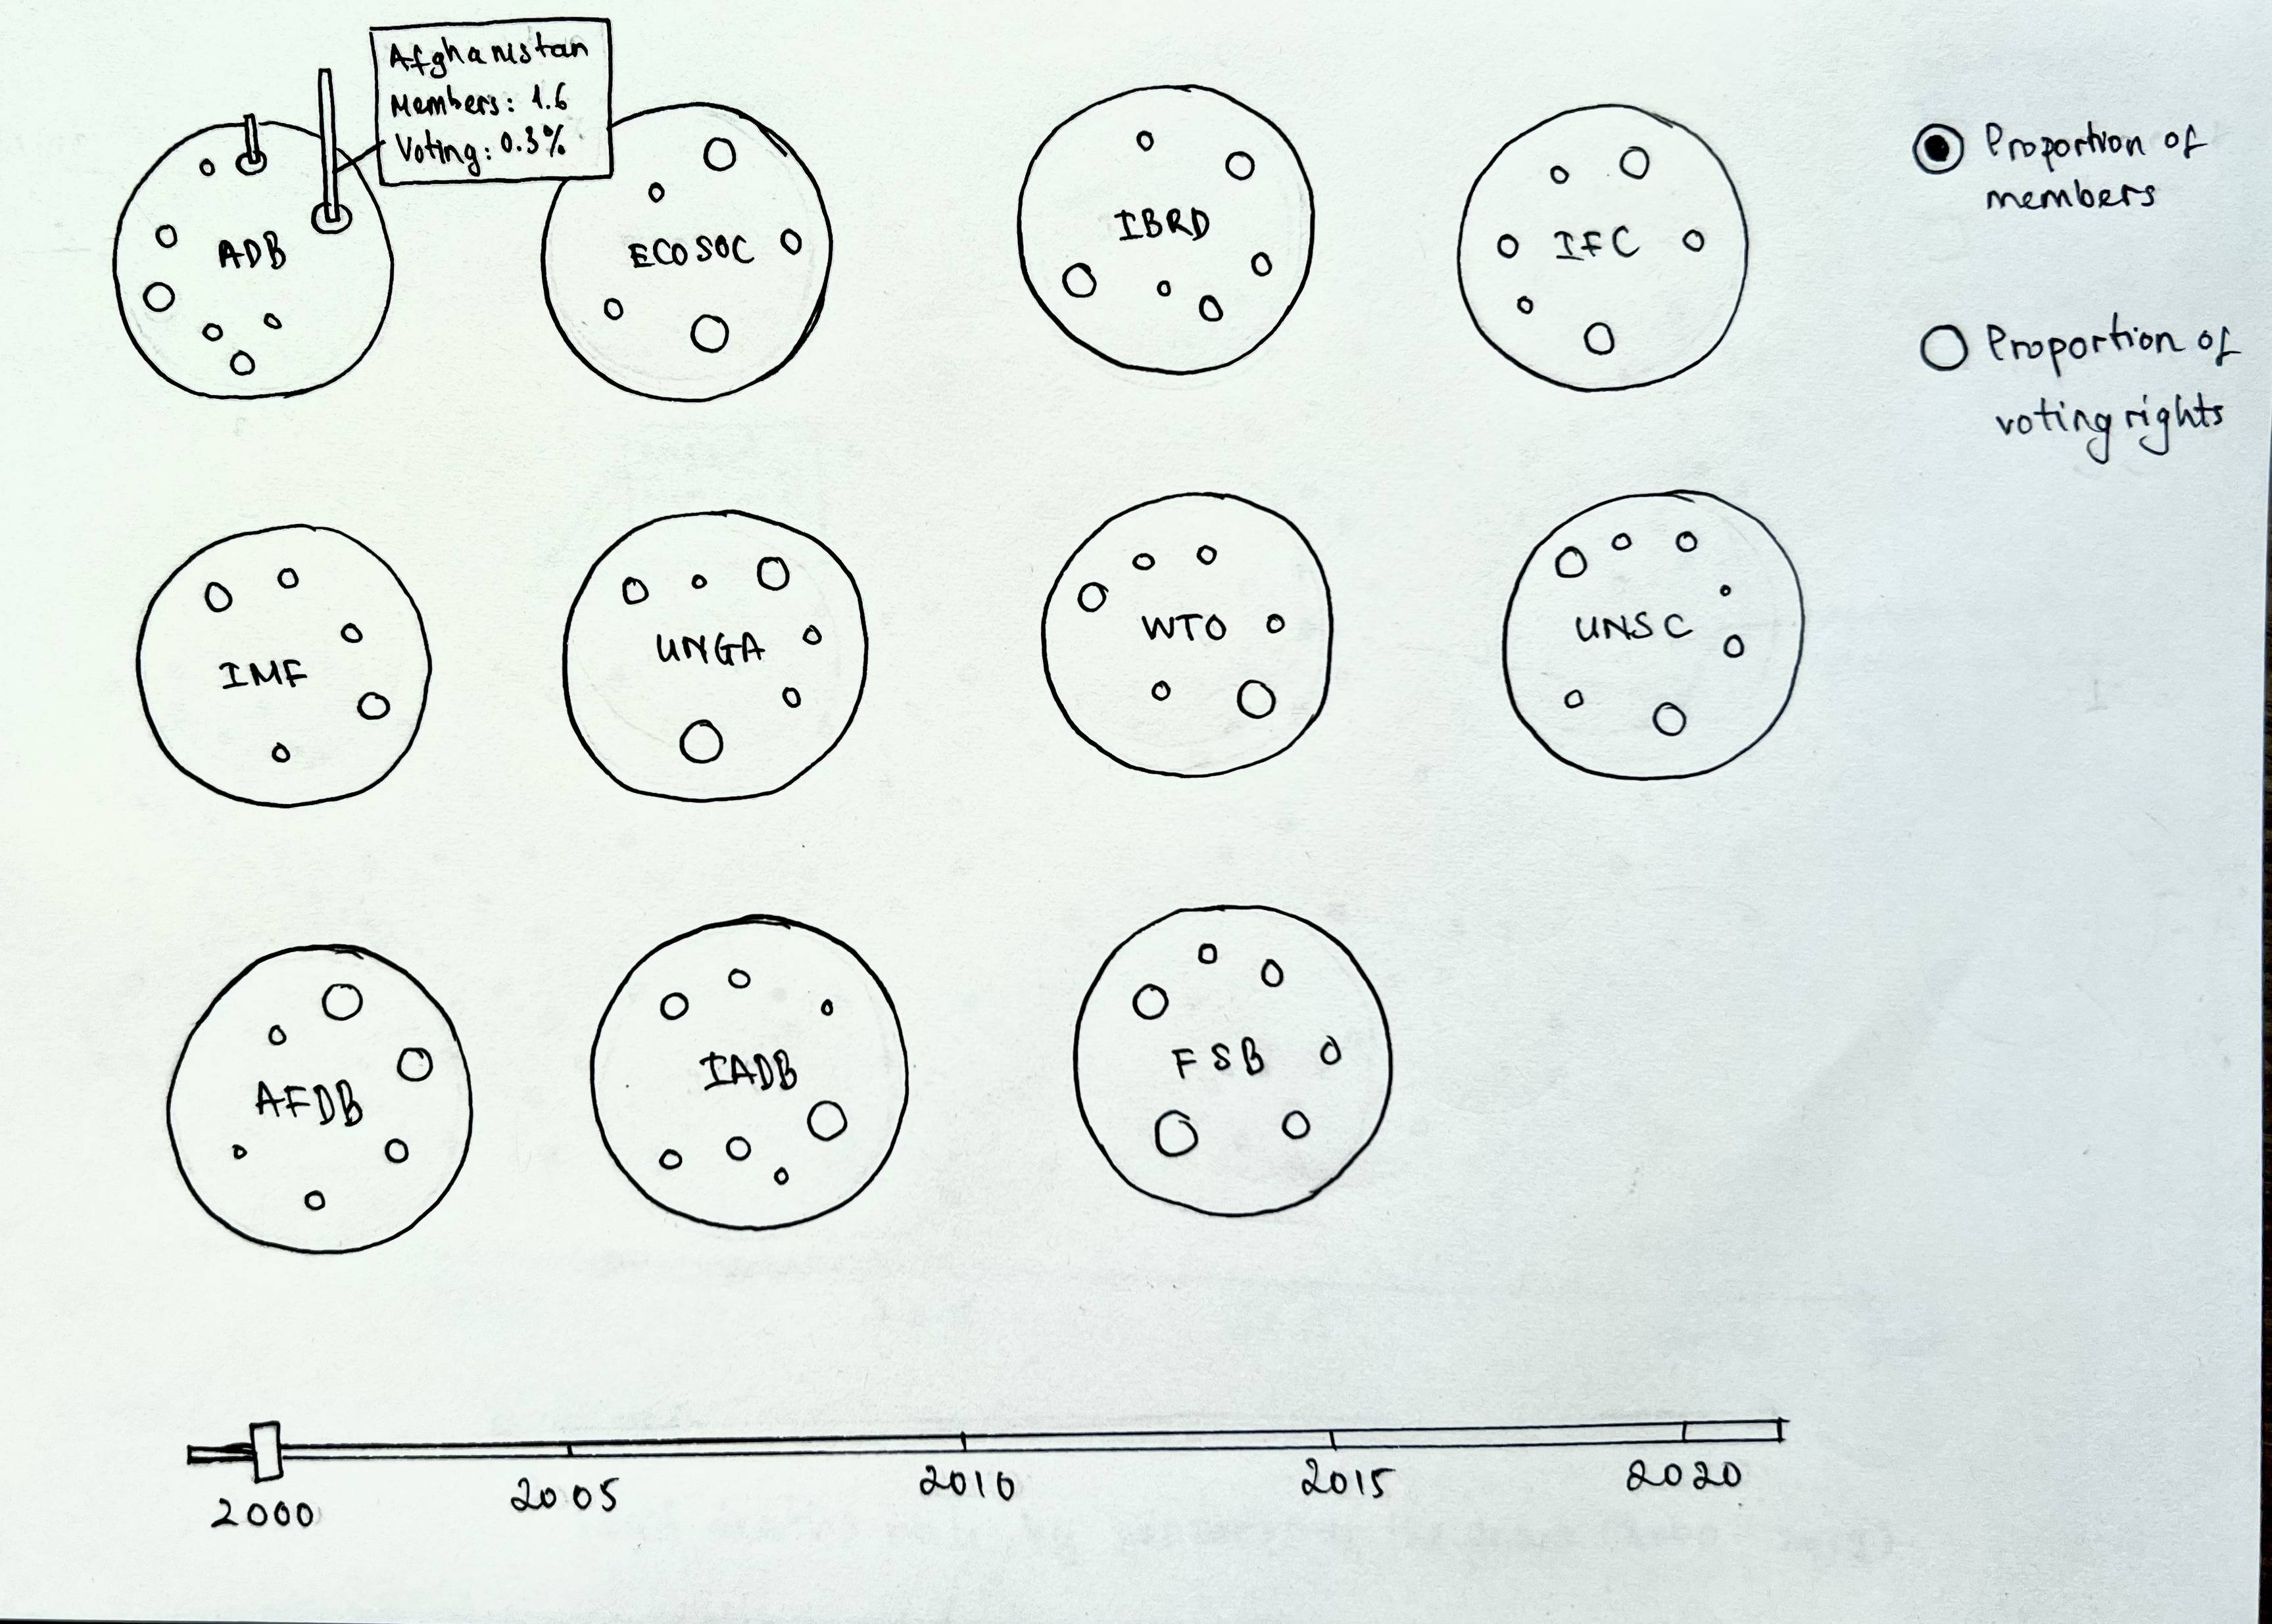 Afghanistan
Members: 1.6
Voting: 0.3%
ADB
ECOSOC
IBRD
IFC
Proportion of
members
Proportion of
voting rights
IMF
UNGA
WTO
UNSC
AFDB
IADB
FSB
2000
2005
2010
2015
2020